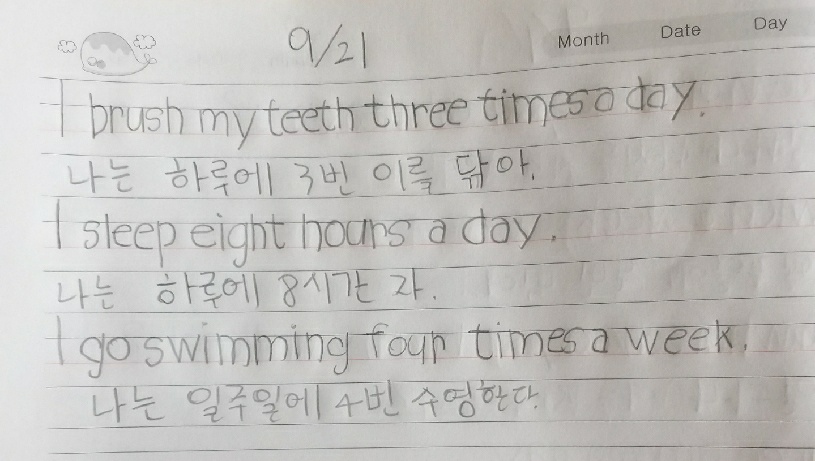 9/21
Month Date Day
I brush my teeth three times a day.
나는 하루에 3번 이를 닦아.
I sleep eight hours a day.
나는 하루에 8시간 자.
I go swimming four times a week.
나는 일주일에 4번 수영한다.